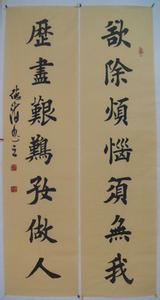 欲除煩惱須無我
歷盡艱難好做人